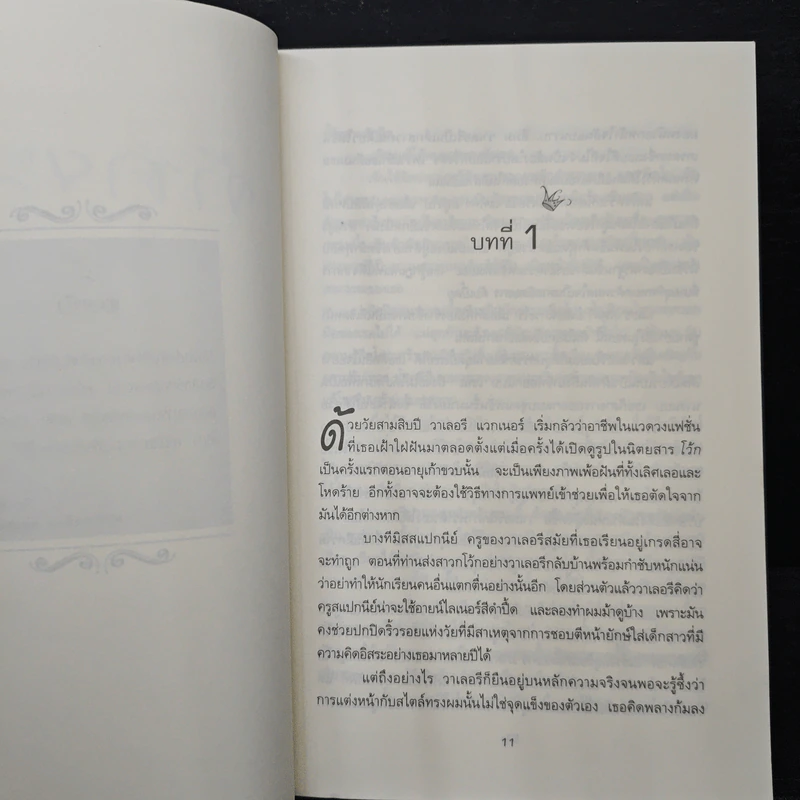 บทที่ 1
ด้วยวัยสามสิบปี วาเลอรี แวกเนอร์ เริ่มกลัวว่าอาชีพในแวดวงแฟชั่น
ที่เธอเฝ้าใฝ่ฝันมาตลอดตั้งแต่เมื่อครั้งได้เปิดดูรูปในนิตยสาร โว้ก
เป็นครั้งแรกตอนอายุเก้าขวบนั้น จะเป็นเพียงภาพเพ้อฝันที่ทั้งเลิศเลอและ
โหดร้าย อีกทั้งอาจจะต้องใช้วิธีทางการแพทย์เข้าช่วยเพื่อให้เธอตัดใจจาก
มันได้อีกต่างหาก
บางทีมิสสแปกนีย์ ครูของวาเลอรีสมัยที่เธอเรียนอยู่เกรดสี่อาจ
จะทำถูก ตอนที่ท่านส่งสาวกโว้กอย่างวาเลอรีกลับบ้านพร้อมกำชับหนักแน่น
ว่าอย่าทำให้นักเรียนคนอื่นแตกตื่นอย่างนั้นอีก โดยส่วนตัวแล้ววาเลอรีคิดว่า
ครูสแปกนีย์น่าจะใช้อายน์ไลเนอร์สีดำปื้ด และลองทำผมม้าดูบ้าง เพราะมัน
คงช่วยปกปิดริ้วรอยแห่งวัยที่มีสาเหตุจากการชอบตีหน้ายักษ์ใส่เด็กสาวที่มี
ความคิดอิสระอย่างเธอมาหลายปีได้
แต่ถึงอย่างไร วาเลอรีก็ยืนอยู่บนหลักความจริงจนพอจะรู้ซึ้งว่า
การแต่งหน้ากับสไตล์ทรงผมนั้นไม่ใช่จุดแข็งของตัวเอง เธอคิดพลางก้มลง
11